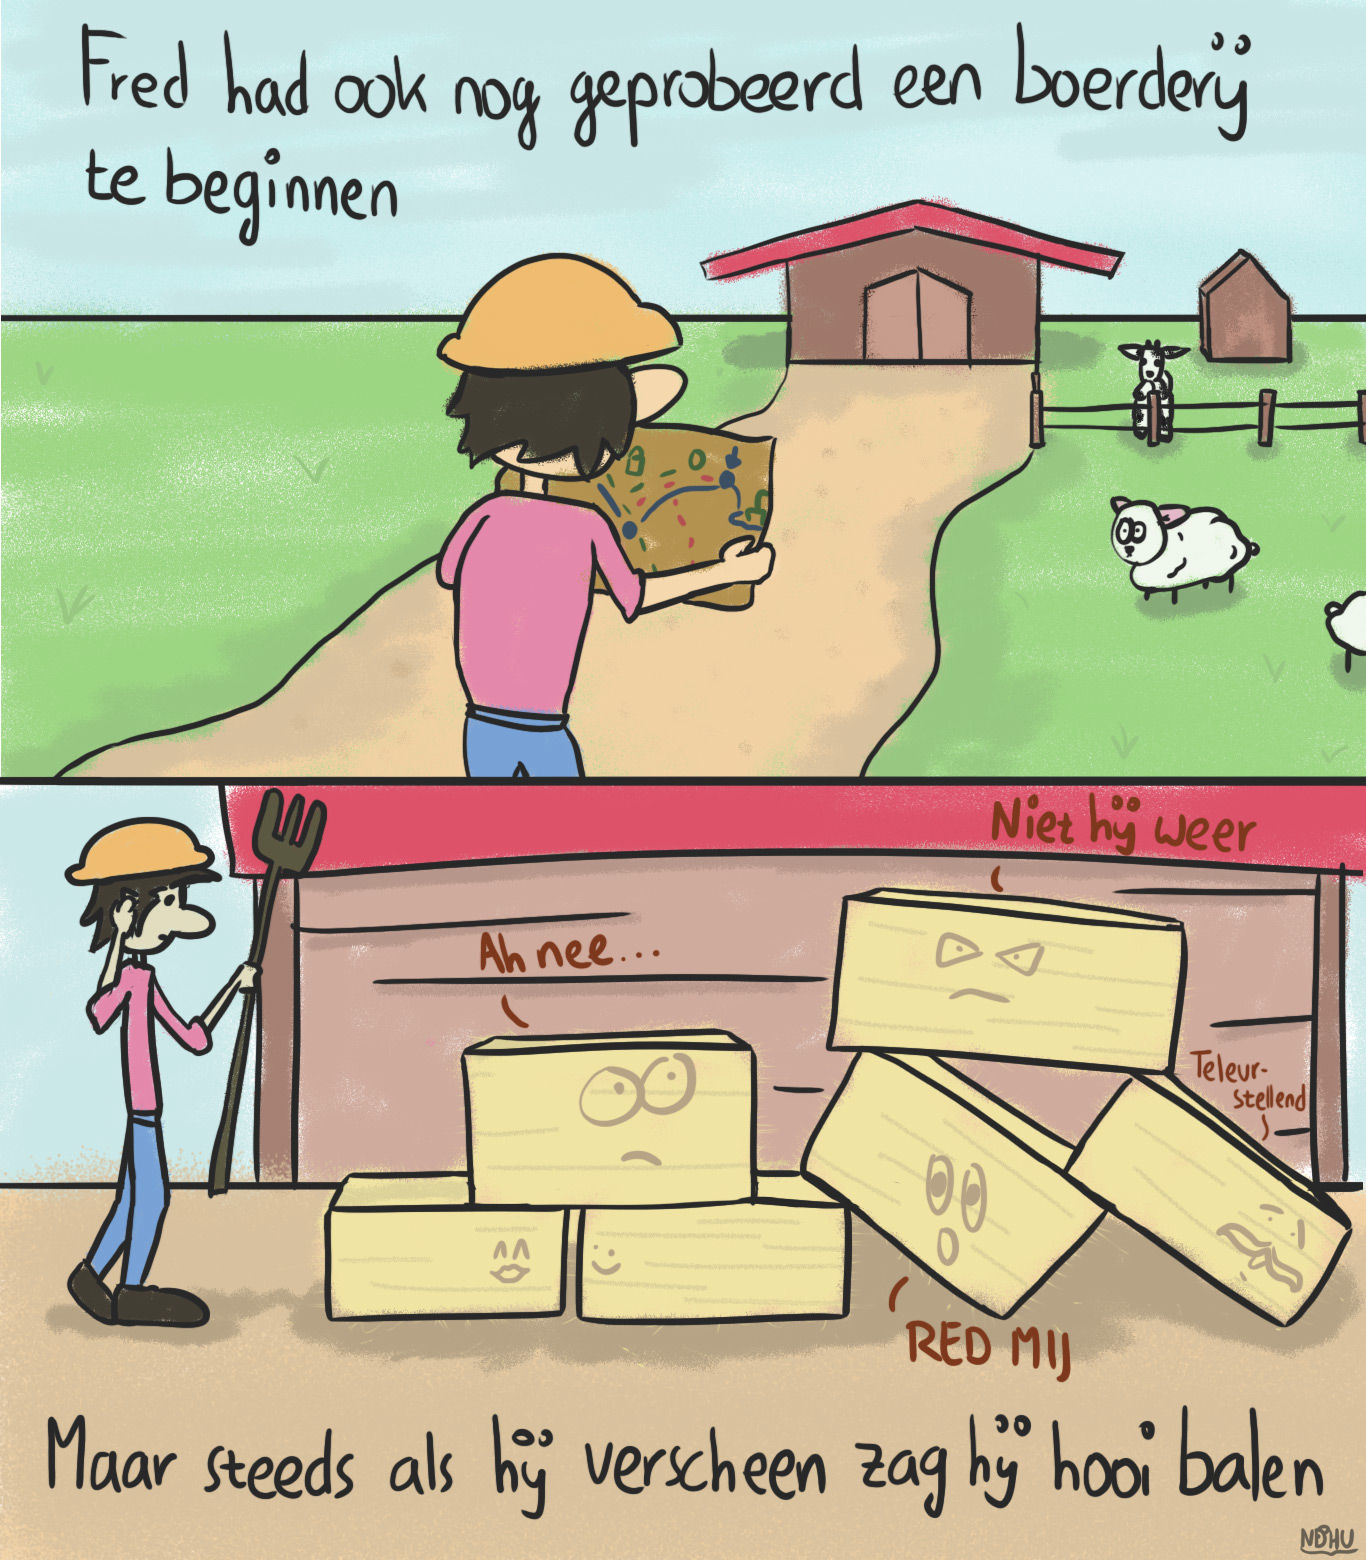 Fred had ook nog geprobeerd een boerderij
te beginnen
Niet hij weer
Ah nee...
Teleur-
stellend
RED MIJ
Maar steeds als hij verscheen zag hij hooi balen
NOHU